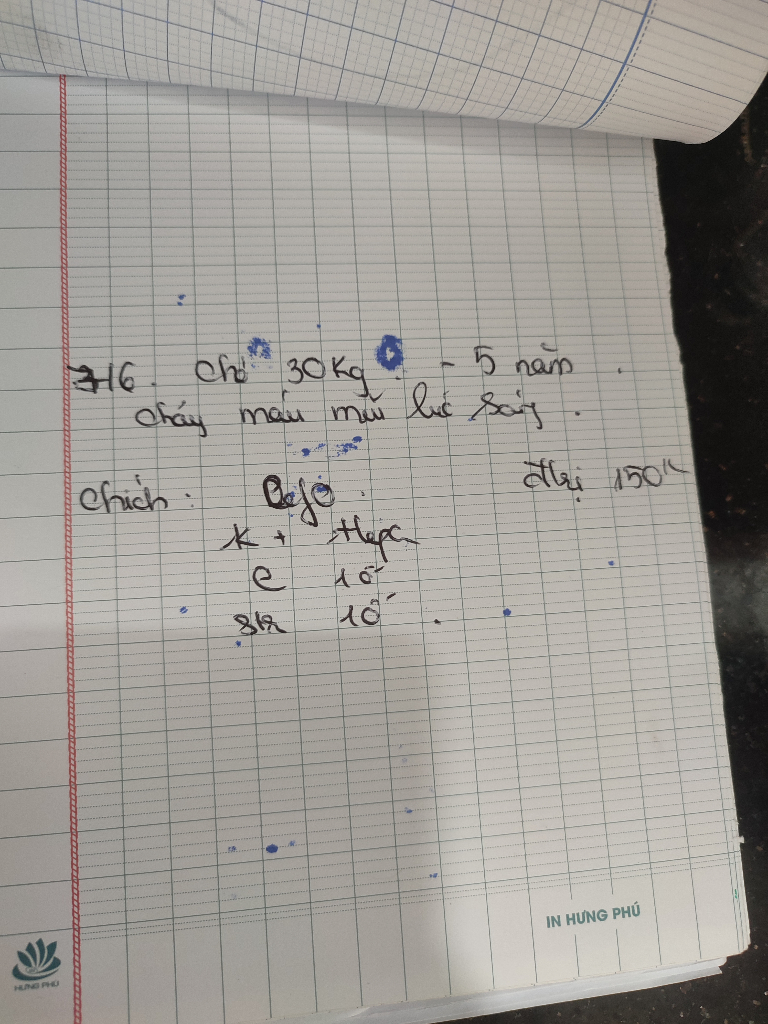 7/6. Chó 30Kg. - 5 năm.
Chảy máu mũi lúc sáng.
Chích: Cefo. đtrị 150K
K + Hepa
C 10
10.
IN HƯNG PHÚ
HƯNG PHÚ